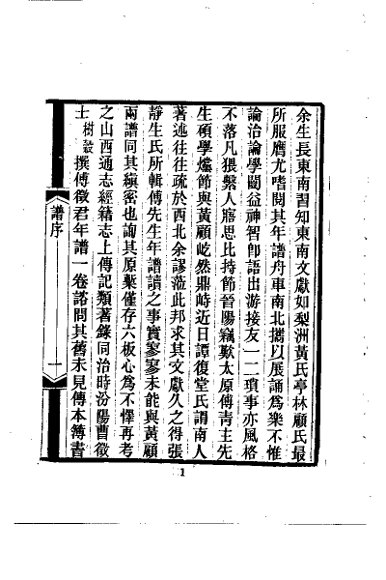 余生長東南習知東南文獻如梨洲黃氏亭林顧氏最
所服膺尤嗜閱其年譜舟車南北攜以展誦爲樂不惟
論治論學闓益神智卽語出游接友一二瑣事亦風格
不落凡猥繫人寤思比持節晉陽竊歎太原傅青主先
生碩學爐節與黃顧屹然鼎峙近日譚復堂氏謂南人
著述往往疏於西北余謬蒞此邦求其文獻久之得張
靜生氏所輯傅先生年譜讀之事實寥寥未能與黃顧
兩譜同其縝密也詢其原槀僅存六板心爲不懌再考
之山西通志經籍志上傳記類著錄同治時汾陽曹徵
士樹穀撰傅徵君年譜一卷諮問其舊未見傳本簿書
譜序
1